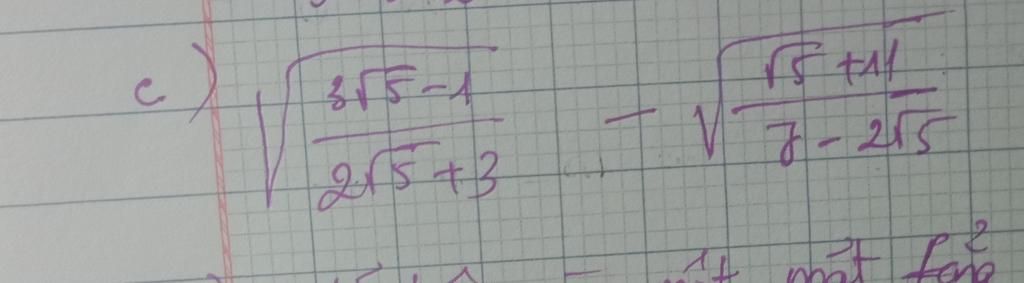 c) √((3√5 - 1)/(2√5 + 3)) - √((√5 + 11)/(7 - 2√5))
một